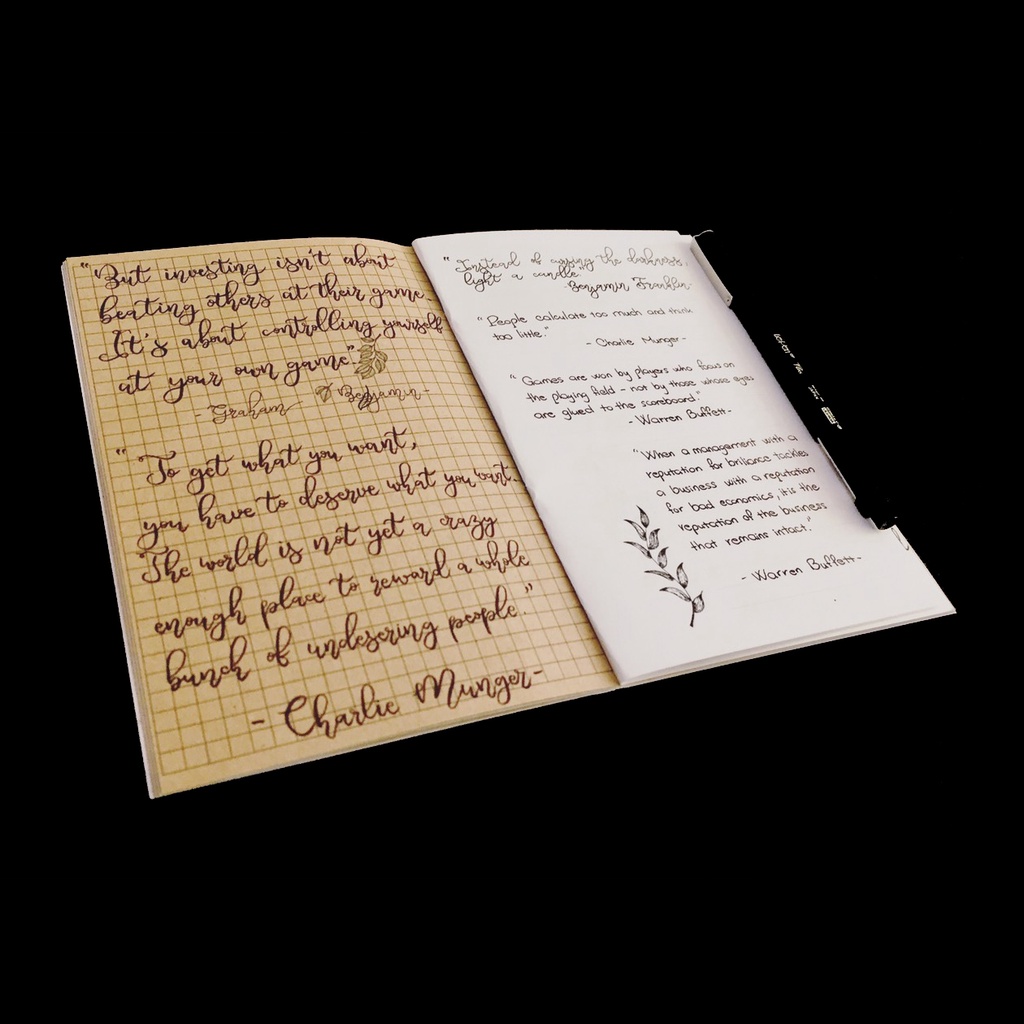 "But investing isn't about
beating others at their game.
It's about controlling yourself
at your own game"
-Graham Benjamin-
"To get what you want,
you have to deserve what you want.
The world is not yet a crazy
enough place to reward a whole
bunch of undesering people."
- Charlie Munger-
"Instead of cursing the darkness,
light a candle."
-Benjamin Franklin-
"People calculate too much and think
too little."
- Charlie Munger-
"Games are won by players who focus on
the playing field - not by those whose eyes
are glued to the scoreboard."
- Warren Buffett-
"When a management with a
reputation for briliance tackles
a business with a reputation
for bad economics, it is the
reputation of the business
that remains intact."
- Warren Buffett-